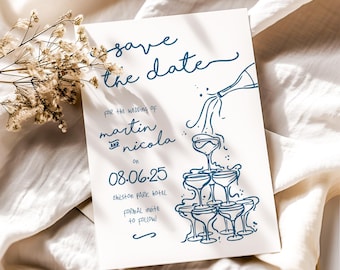 save
the date
for the wedding of
martin
and
nicola
on
08.06.25
PARK HOTEL
formal invite
to follow